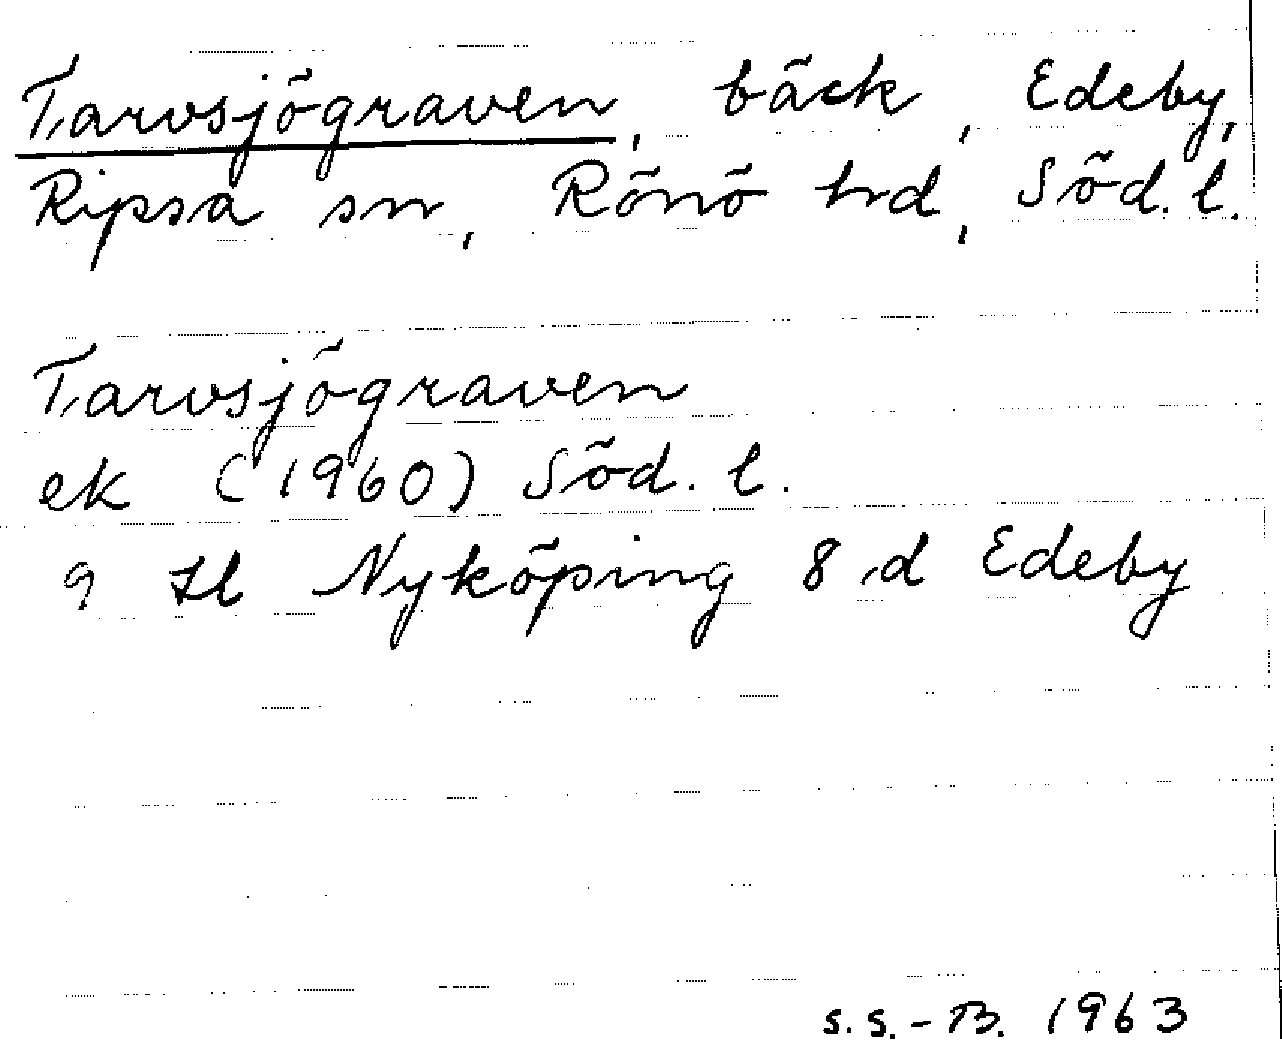 Tarvsjögraven, bäck, Edeby,
Ripsa sn, Rönö hd, Söd. l.
Tarvsjögraven
ek (1960) Söd. l.
9 H Nyköping 8 d Edeby
S.S.-B. 1963